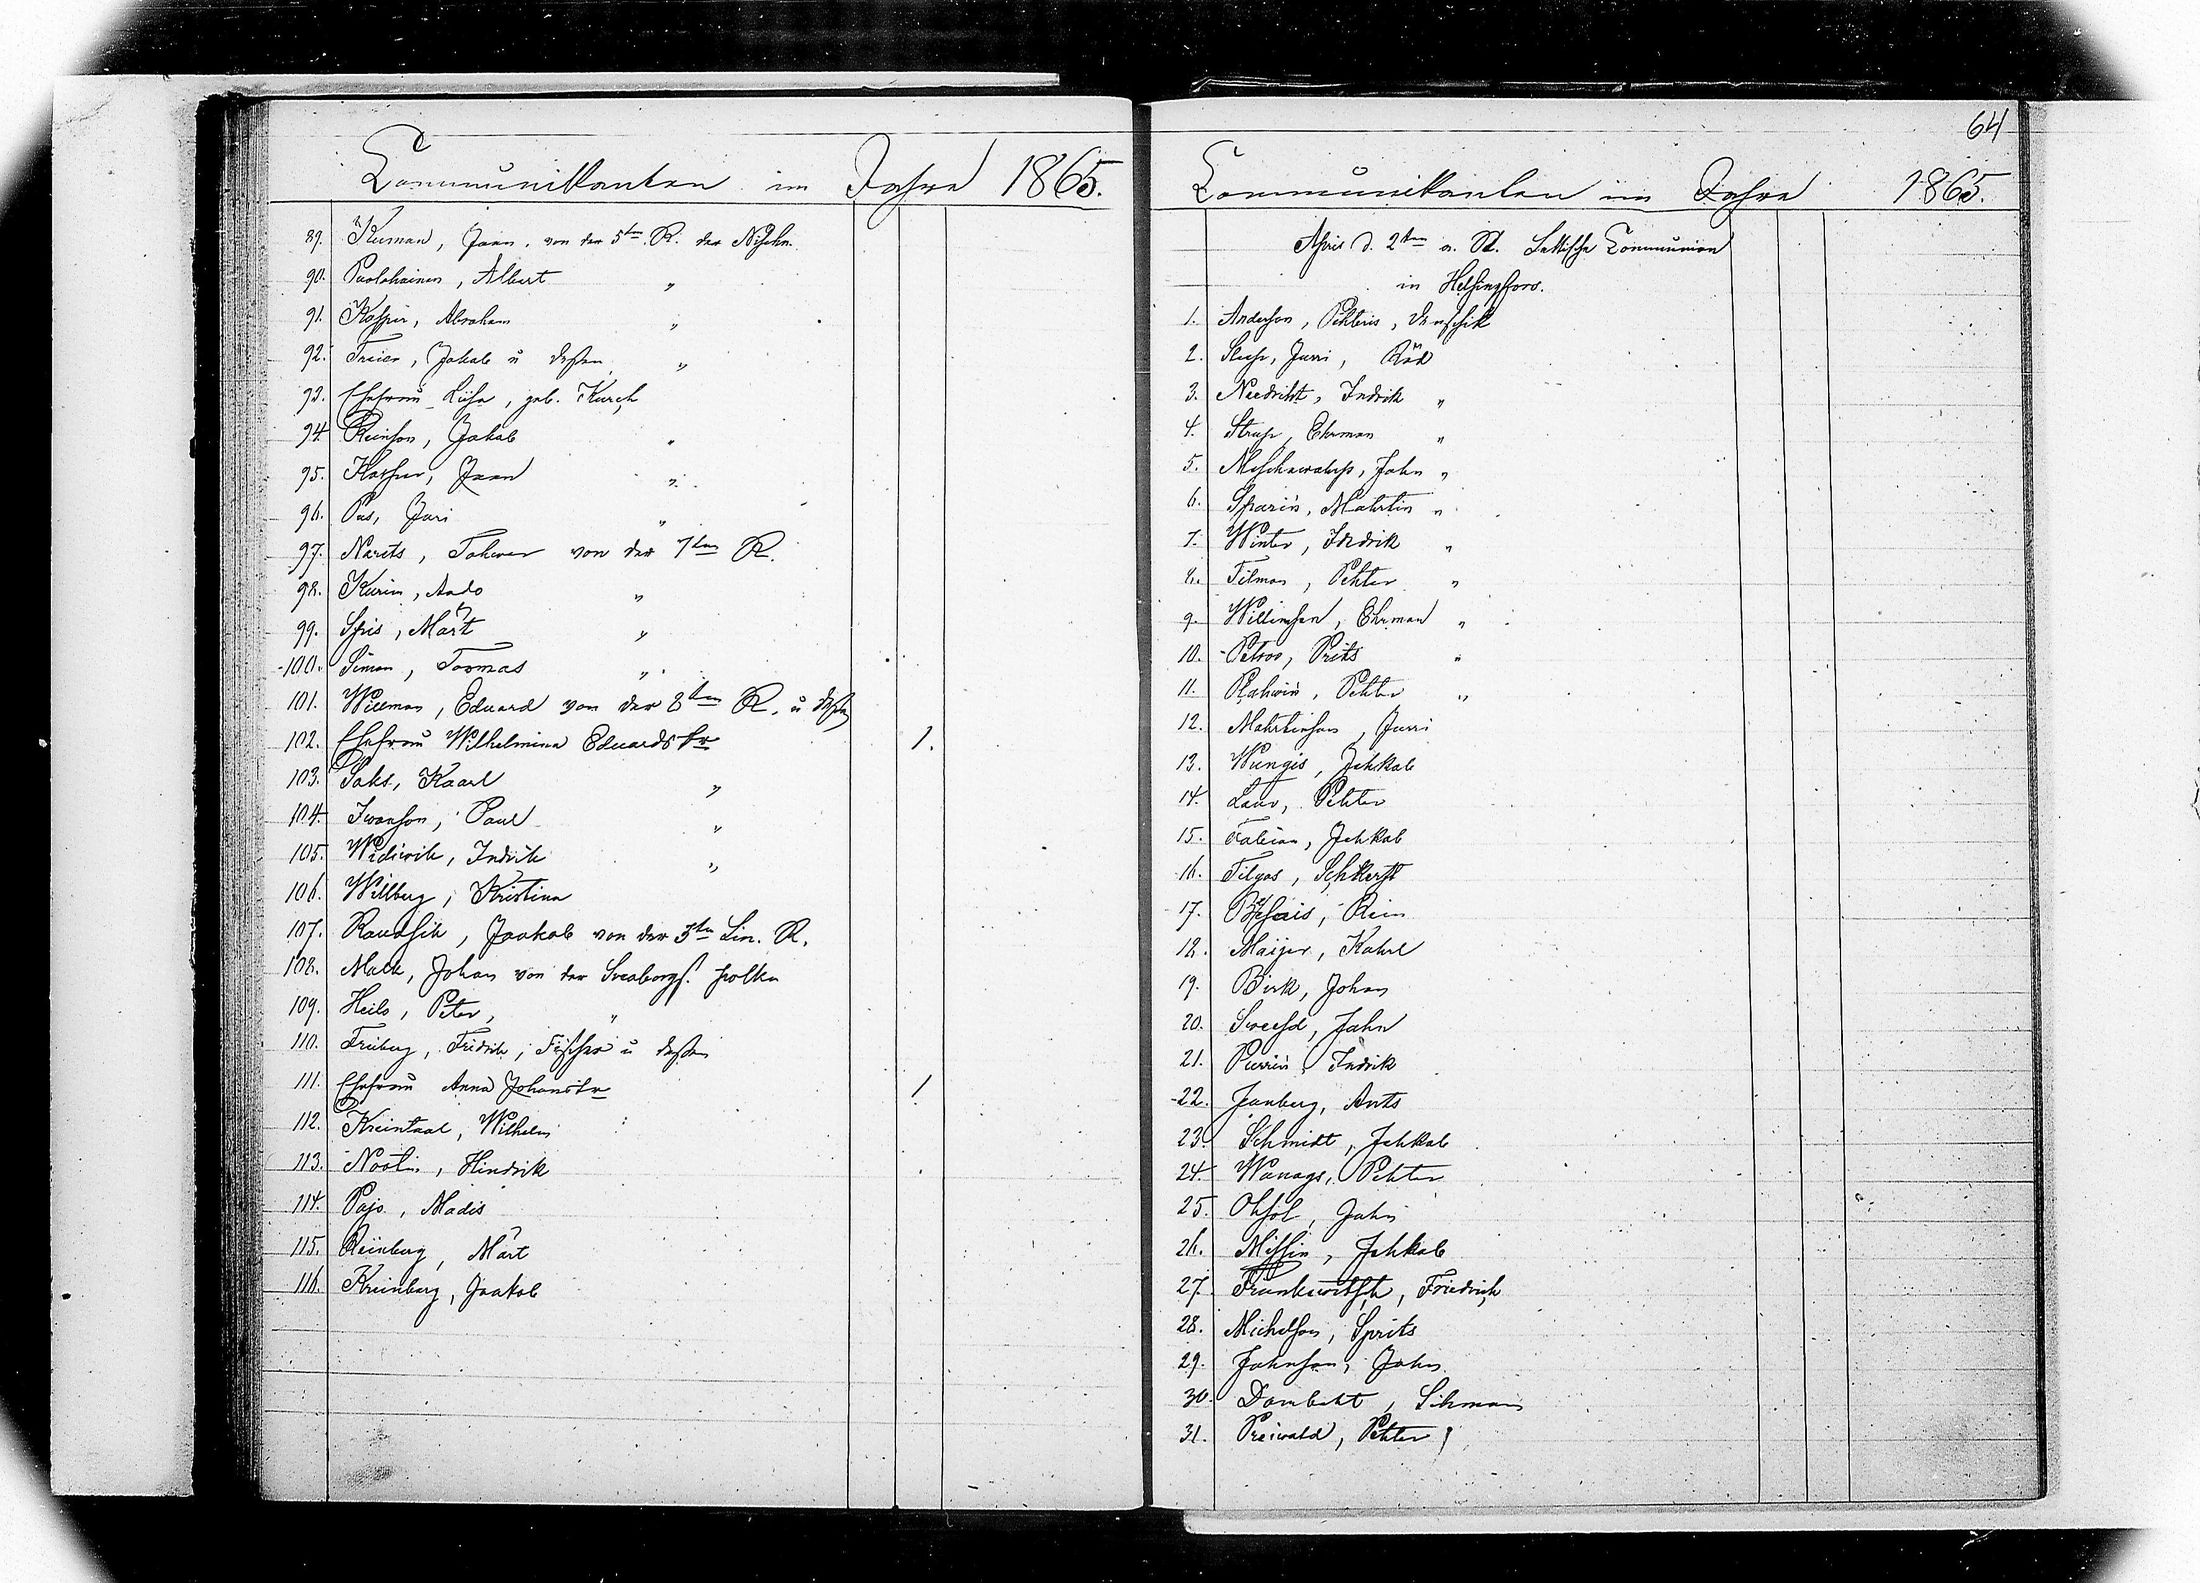 Communikanten im Jahre 1865.
89. Kuman, Jaan, von der 5ten R. der
90. Albert "
91. Abraham "
92. Freier, Jakob u deßen "
93. Ehefrau Liisa, geb.
94. Reinson, Jakob "
95. Kasper, Jaan "
96. Jüri "
97. Narits, Tahwer von der 7ten R.
98. Kurim, Ado "
99. Märt "
100. Simon, Toomas "
101. Willman, Eduard von der 8ten R. u deßen
102. Ehefrau Wilhelmina Eduardstr 1.
103. Saks, Kaarl "
104. Iwanson, Paul "
105. Widiwik, Indrik "
106. Willberg, Kristina
107. Jaakob von der 3ten Lin. R.
108. Malk, Johan von der Sveaborgs.
109. Heils, Peter, "
110. Freiberg, Fridrik, u deßen
111. Ehefrau Anna Johanstr 1
112. Kreintaal, Wilhelm
113. Hindrik
114. Pajo, Madis
115. Reinberg, Märt
116. Kreinberg, Jaakob
64
Communikanten im Jahre 1865.
April d. 2ten a. St. Lettische Communion
in Helsingfors.
1. Anderson, Pehteris,
2. Jurri,
3. Needrikt, Indrik "
4. Ehrman "
5. Jahn "
6. Sparin, Mahrtin "
7. Winter, Indrik "
8. Tilman, Pehter "
9. Willimson, Ehrman "
10. Petrow, Prits "
11. Plahwin, Pehter "
12. Mahrtinson, Jurri
13. Wungis, Jehkab
14. Laur, Pehter
15. Fabian, Jehkab
16. Tilgas,
17. Rein
18. Maijer, Kahrl
19. Birk, Johan
20. Jahn
21. Purrin, Indrik
22. Janberg, Ants
23. Schmidt, Jehkab
24. Wanags, Pehter
25. Ohsol, Jahn
26. Missin, Jehkab
27. Friedrich
28. Michelson, Sprits
29. Jahnson, Jahn
30. Dambekt, Sihman
31. Preiwald, Pehter